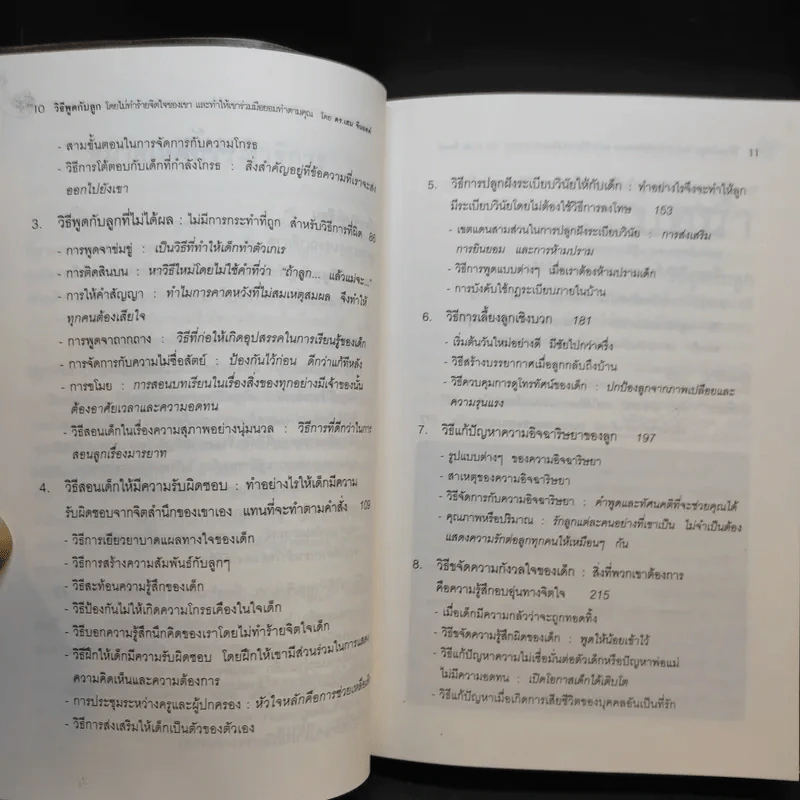 10 วิธีพูดกับลูก โดยไม่ทำร้ายจิตใจของเขา และทำให้เขาร่วมมือยอมทำตามคุณ โดย ดร.เฮม จีนอตต์
- สามขั้นตอนในการจัดการกับความโกรธ
- วิธีการโต้ตอบกับเด็กที่กำลังโกรธ : สิ่งสำคัญอยู่ที่ข้อความที่เราจะส่ง
ออกไปยังเขา
3. วิธีพูดกับลูกที่ไม่ได้ผล : ไม่มีการกระทำที่ถูก สำหรับวิธีการที่ผิด 86
- การพูดจาข่มขู่ : เป็นวิธีที่ทำให้เด็กทำตัวเกเร
- การติดสินบน : หาวิธีใหม่โดยไม่ใช้คำที่ว่า "ถ้าลูก... แล้วแม่จะ..."
- การให้คำสัญญา : ทำไมการคาดหวังที่ไม่สมเหตุสมผล จึงทำให้
ทุกคนต้องเสียใจ
- การพูดจาถากถาง : วิธีที่ก่อให้เกิดอุปสรรคในการเรียนรู้ของเด็ก
- การจัดการกับความไม่ซื่อสัตย์ : ป้องกันไว้ก่อน ดีกว่าแก้ทีหลัง
- การขโมย : การสอนบทเรียนในเรื่องสิ่งของทุกอย่างมีเจ้าของนั้น
ต้องอาศัยเวลาและความอดทน
- วิธีสอนเด็กในเรื่องความสุภาพอย่างนุ่มนวล : วิธีการที่ดีกว่าในการ
สอนลูกเรื่องมารยาท
4. วิธีสอนเด็กให้มีความรับผิดชอบ : ทำอย่างไรให้เด็กมีความ
รับผิดชอบจากจิตสำนึกของเขาเอง แทนที่จะทำตามคำสั่ง 109
- วิธีการเยียวยาบาดแผลทางใจของเด็ก
- วิธีการสร้างความสัมพันธ์กับลูกๆ
- วิธีสะท้อนความรู้สึกของเด็ก
- วิธีป้องกันไม่ให้เกิดความโกรธเคืองในใจเด็ก
- วิธีบอกความรู้สึกนึกคิดของเราโดยไม่ทำร้ายจิตใจเด็ก
- วิธีฝึกให้เด็กมีความรับผิดชอบ โดยฝึกให้เขามีส่วนร่วมในการแสดง
ความคิดเห็นและความต้องการ
- การประชุมระหว่างครูและผู้ปกครอง : หัวใจหลักคือการช่วยเหลือเด็ก
- วิธีการส่งเสริมให้เด็กเป็นตัวของตัวเอง
11
5. วิธีการปลูกฝังระเบียบวินัยให้กับเด็ก : ทำอย่างไรจึงจะทำให้ลูก
มีระเบียบวินัยโดยไม่ต้องใช้วิธีการลงโทษ 153
- เขตแดนสามส่วนในการปลูกฝังระเบียบวินัย : การส่งเสริม
การยินยอม และการห้ามปราม
- วิธีการพูดแบบต่างๆ เมื่อเราต้องห้ามปรามเด็ก
- การบังคับใช้กฎระเบียบภายในบ้าน
6. วิธีการเลี้ยงลูกเชิงบวก 181
- เริ่มต้นวันใหม่อย่างดี มีชัยไปกว่าครึ่ง
- วิธีสร้างบรรยากาศเมื่อลูกกลับถึงบ้าน
- วิธีควบคุมการดูโทรทัศน์ของเด็ก : ปกป้องลูกจากภาพเปลือยและ
ความรุนแรง
7. วิธีแก้ปัญหาความอิจฉาริษยาของลูก 197
- รูปแบบต่างๆ ของความอิจฉาริษยา
- สาเหตุของความอิจฉาริษยา
- วิธีจัดการกับความอิจฉาริษยา : คำพูดและทัศนคติที่จะช่วยคุณได้
- คุณภาพหรือปริมาณ : รักลูกแต่ละคนอย่างที่เขาเป็น ไม่จำเป็นต้อง
แสดงความรักต่อลูกทุกคนให้เหมือนๆ กัน
8. วิธีขจัดความกังวลใจของเด็ก : สิ่งที่พวกเขาต้องการ
คือความรู้สึกอบอุ่นทางจิตใจ 215
- เมื่อเด็กมีความกลัวว่าจะถูกทอดทิ้ง
- วิธีขจัดความรู้สึกผิดของเด็ก : พูดให้น้อยเข้าไว้
- วิธีแก้ปัญหาความไม่เชื่อมั่นต่อตัวเด็กหรือปัญหาพ่อแม่
ไม่มีความอดทน : เปิดโอกาสเด็กได้เติบโต
- วิธีแก้ปัญหาเมื่อเกิดการเสียชีวิตของบุคคลอันเป็นที่รัก